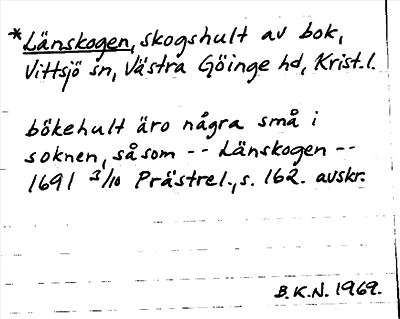 *Länskogen, skogshult av bok,
Vittsjö sn, Västra Göinge hd, Krist.l.
bökehult äro några små i
soknen, såsom -- Länskogen --
1691 3/10 Prästrel., s. 162. avskr.
B.K.N. 1969.